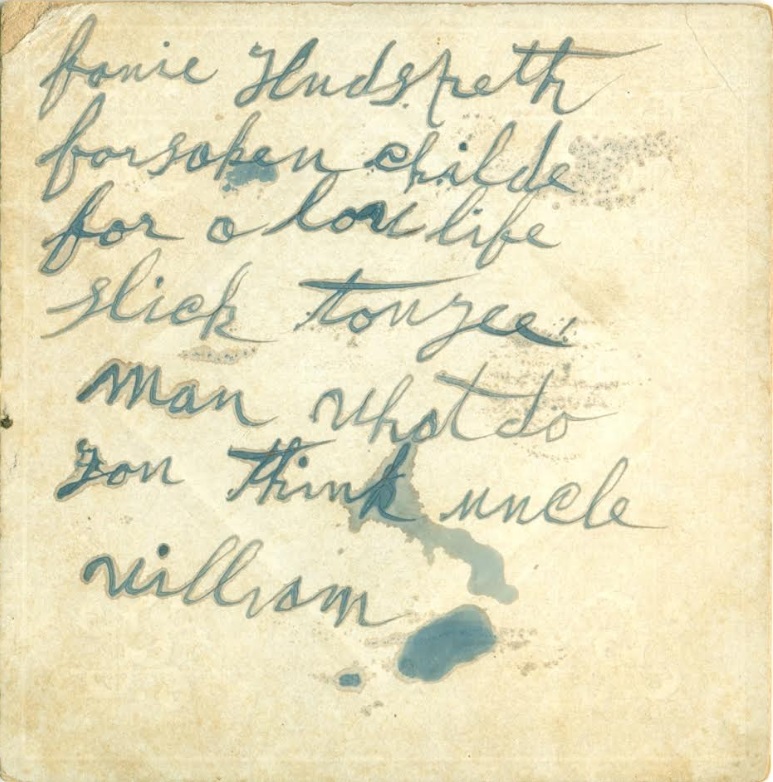 fanie Hudspeth
forsaken childe
for a low life
slick tongee
man what do
you think uncle
william